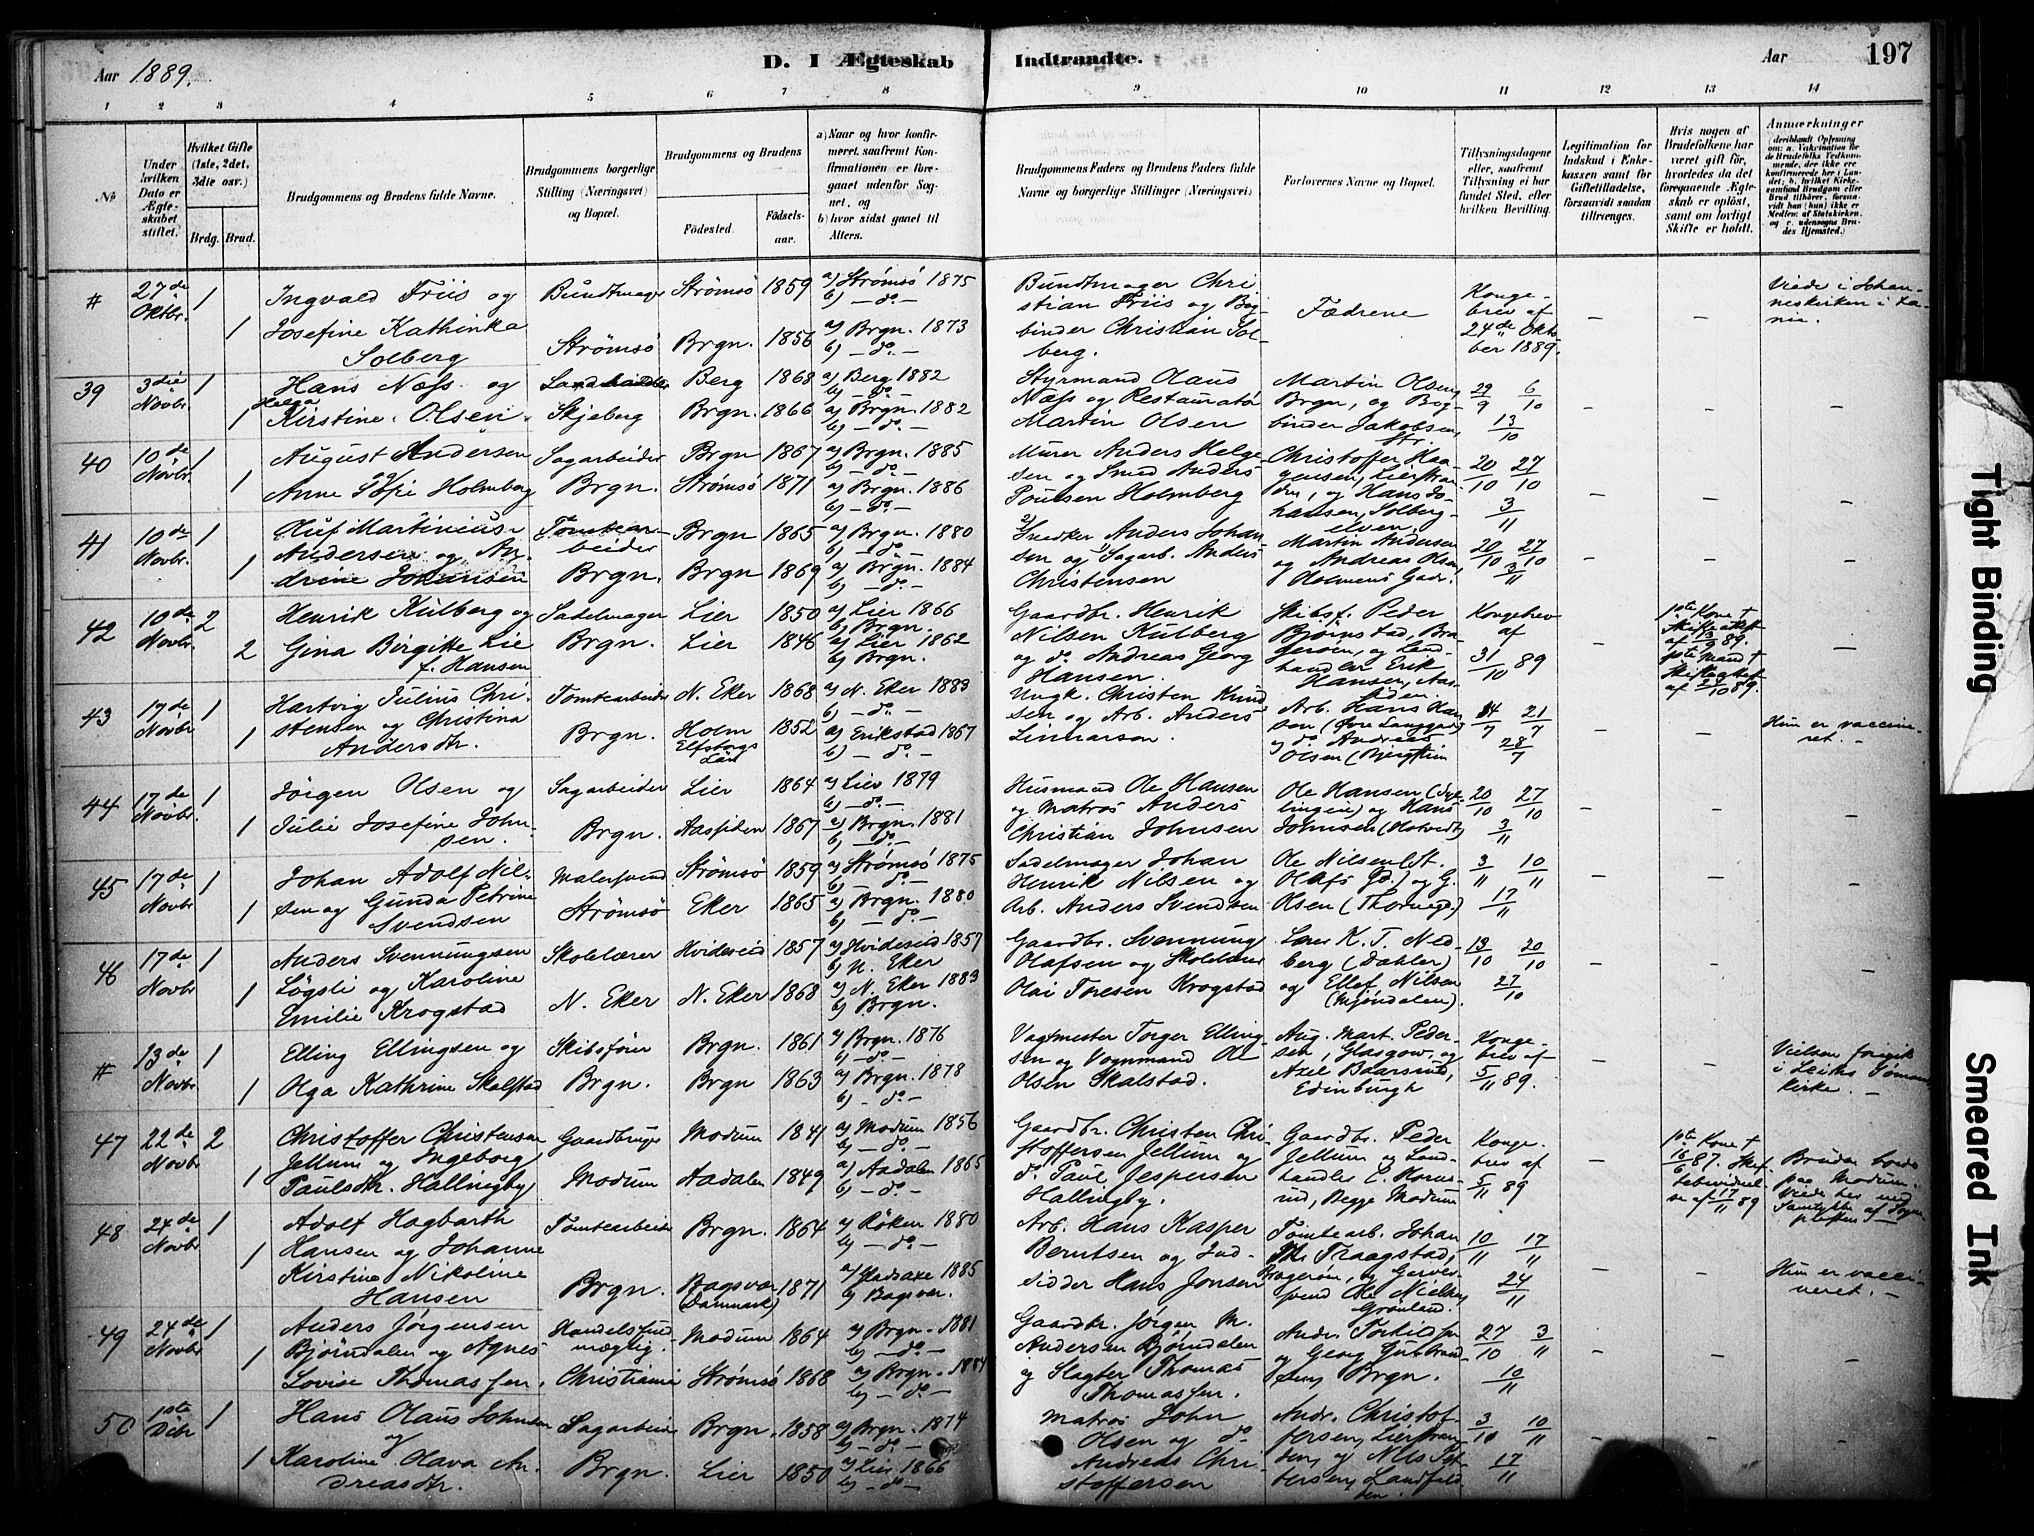 Aar 1889.
D. I Ægteskab Indtraadte.
Aar 197
1 2 3 4 5 6 7 8 9 10 11 12 13 14
No
Under hvilken Dato er Ægteskabet stiftet.
Hvilket Gifte (1ste, 2det, 3die osv.)
Brdg. Brud.
Brudgommens og Brudens fulde Navne.
Brudgommens borgerlige Stilling (Næringsvei) og Bopæl.
Brudgommens og Brudens
Födested. Födselsaar.
a) Naar og hvor konfirmeret, saafremt Konfirmationen er foregaaet udenfor Sognet, og
b) hvor sidst gaaet til Alters.
Brudgommens Faders og Brudens Faders fulde Navne og borgerlige Stillinger (Næringsvei)
Forlovernes Navne og Bopæl.
Tillysningsdagene eller, saafremt Tillysning ei har fundet Sted, efter hvilken Bevilling.
Legitimation for Indskud i Enkekassen samt for Giftetilladelse, forsaavidt saadan tiltrænges.
Hvis nogen af Brudefolkene har været gift før, hvorledes da det foregaaende Ægteskab er oplöst, samt om lovligt Skifte er holdt.
Anmærkninger
# 27de Oktbr. 1 Ingvald Friis og Bundtmager Strömsö 1859 a) Strömsö 1875 b) - do. -
1 Josefine Kathinka Solberg Strömsö Brgn. 1856 a) Brgn. 1873 b) - do. -
Bundtmager Christian Friis og Bogbinder Christian Solberg. Fædrene Kongebrev af 24de Oktober 1889. - - Viede i Johanneskirken i
39 3die Novbr. 1 Hans Næss og Berg 1868 a) Berg 1882 b) - do. -
1 Helga Kirstine Olsen. Skjeberg Brgn. 1866 a) Brgn. 1882 b) - do. -
Styrmand Olaus Næss og Restauratör Martin Olsen Martin Olsen, Brgn, og Bogbinder Jakobsen, Str. 29/9 6/10 13/10 - - -
40 10de Novbr. 1 August Andersen Sagarbeider Brgn 1867 a) Brgn. 1885 b) - do. -
1 Anne Sofie Holmberg Brgn. Strömsö 1871 a) Brgn. 1886 b) - do. -
Murer Anders Helgesen og Smed Anders Poulsen Holmberg Christoffer Haagensen, Lierstranden, og Hans Johansen, Solbergelven. 20/10 27/10 3/11 - - -
41 10de Novbr. 1 Oluf Martinius Andersen og Tomtearbeider Brgn 1865 a) Brgn. 1880 b) - do. -
1 Andrine Johansen Brgn. Brgn 1869 a) Brgn. 1884 b) - do. -
2) Snedker Anders Johansen og 1) Sagarb. Anders Christensen Martin Andersen og Andreas Olsen, Holmens Gade. 20/10 27/10 3/11 - - -
42 10de Novbr. 2 Henrik Kulberg og Sadelmager Lier 1850 a) Lier 1866 b) Brgn.
2 Gina Birgitte Lie f. Hansen Brgn. Lier 1846 a) Lier 1862 b) Brgn.
Gaardbr. Henrik Nilsen Kulberg og do. Andreas Georg Hansen. Skibsf. Peder Björnstad, Brageröen, og Landhandler Erik Hansen, Aassiden. Kongebrev af 31/10 89 - 1ste Kone † Skifteattest af 89. 1ste Mand † Skifteattest af 89. -
43 17de Novbr. 1 Hartvig Julius Christensen og Tomtearbeider N. Eker 1868 a) N. Eker 1883 b) - do. -
1 Christina Andersdtr. Brgn. Holm Elfsborgs Län 1852 a) Erikstad 1867 b) - do. -
Ungk. Christen Knudsen og Arb. Anders Linnarson. Arb. Hans Hansen (Övre Langgade) og do. Andreas Olsen 14/7 21/7 28/7 - - Hun er vaccineret. -
44 17de Novbr. 1 Jörgen Olsen og Sagarbeider Lier 1864 a) Lier 1879 b) - do. -
1 Julie Josefine Johnsen. Brgn. Aassiden 1867 a) Brgn. 1881 b) - do. -
Husmand Ole Hansen og Matros Anders Christian Johnsen Ole Hansen og Hans Johnsen 20/10 27/10 3/11 - - -
45 17de Novbr. 1 Johan Adolf Nilsen og Malersvend Strömsö 1859 a) Strömsö 1875 b) - do. -
1 Gunda Petrine Svendsen Strömsö Eker 1865 a) Brgn. 1880 b) - do. -
Sadelmager Johan Henrik Nilsen og Arb. Anders Svendsen Ole Nilsen (St. Olafs Gd.) og G. Olsen (Thornegd.) 3/11 10/11 17/11 - - -
46 17de Novbr 1 Anders Svennungsen Lögsli og Skolelærer Hvideseid 1857 a) Hvideseid 1857 b) N. Eker
1 Karoline Emilie Krogstad N. Eker N. Eker 1868 a) N. Eker 1883 b) Brgn.
Gaardbr. Svennung Olafsen og Skolelærer Olai Toresen Krogstad Lærer K. T. Nedberg (Dæhler) og Ellef Nilsen (Mjöndalen). 13/10 20/10 27/10 - - -
# 13de Novbr. 1 Elling Ellingsen og Skibsförer Brgn. 1861 a) Brgn. 1876 b) - do. -
1 Olga Kathrine Skalstad Brgn. Brgn 1863 a) Brgn. 1878 b) - do. -
Vagtmester Torger Ellingsen og Vognmand Ole Olsen Skalstad. Aug. Mart. Pedersen, Glasgow, og Axel Baarsrud, Edinburgh Kongebrev af 5/11 89. - - Vielsen foregik i Leiths Sömandskirke. -
47 22de Novbr 2 Christoffer Christensen Jellum og Gaardbruger Modum 1841 a) Modum 1856 b) - do. -
1 Ingeborg Paulsdtr. Hallingby Modum Aadalen 1849 a) Aadalen 1865 b) - do. -
Gaardbr. Christen Christoffersen Jellum og do. Paul Jespersen Hallingby. Gaardbr. Peder Jellum og Landhandler C. Hornsrud, Begge Modum Kongebrev af 5/11 89 - 1ste Kone † 16/6 87. Skiftebevidnelse af 17/11 89 Bruden boede paa Modum. Viede her med Samtykke af Sognepresten. -
48 24de Novbr 1 Adolf Hagbarth Hansen og Tomtearbeider Brgn. 1864 a) Röken 1880 b) - do. -
1 Johanne Kirstine Nikoline Hansen Brgn. Bagsvær (Danmark) 1871 a) Gladsaxe 1885 b) Bagsvær.
Arb. Hans Kasper Berntsen og Indsidder Hans Jonsen Tomtearb. Johan Th. Kraagstad, Brageröen, og Garversvend Ole Nielsen, Grönland. 10/11 17/11 24/11 - - Hun er vaccineret. -
49 24de Novbr. 1 Anders Jörgensen Björndalen og Handelsfuldmægtig. Modum 1864 a) Brgn. 1881 b) - do. -
1 Agnes Lovise Thomassen. Christiania Strömsö 1868 a) Brgn. 1884 b) - do. -
Gaardbr. Jörgen M. Andersen Björndalen og Slagter Thomas Thomassen. Andr. Torkildsen og Georg Gulbrandsen, Brgn. 27/10 3/11 10/11 - - -
50 1ste Debr 1 Hans Olaus Johnsen og Sagarbeider Brgn. 1858 a) Brgn. 1874 b) - do. -
1 Karoline Olava Andreasdtr. Brgn. Lier 1850 a) Lier 1866 b) - do. -
Matros John Olsen og do. Andreas Christoffersen Andr. Christoffersen, Lierstranden, og Nils Pettersen, Landfalden. 3/10 10/11 17/11 - - -
Tight Binding
Smeared Ink